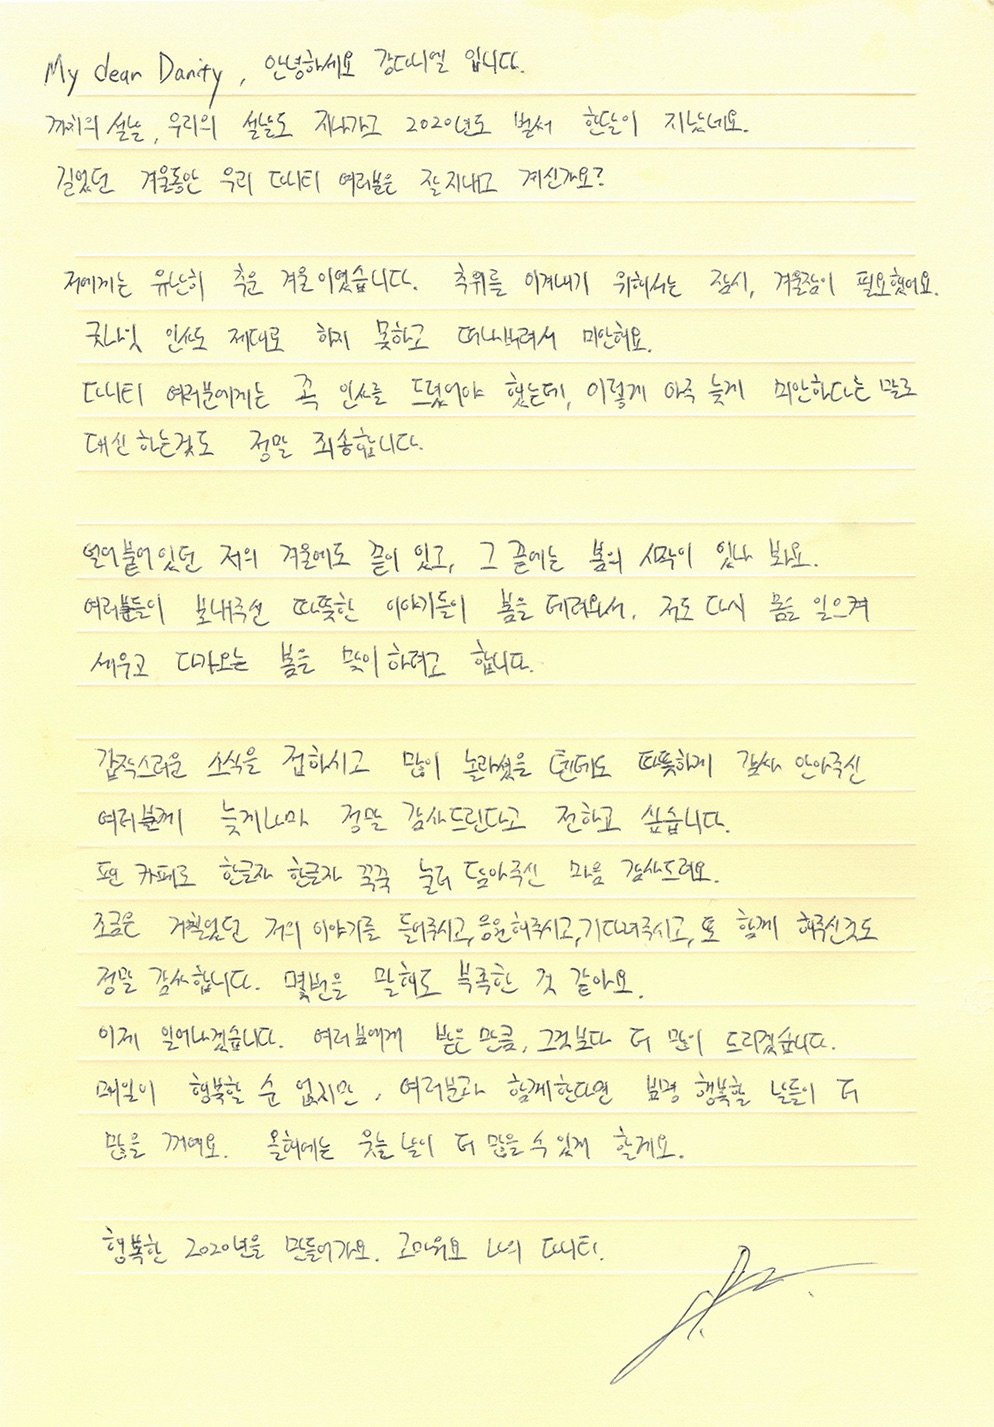 My dear Danity, 안녕하세요 강다니엘 입니다.
까치의 설날, 우리의 설날도 지나가고 2020년도 벌써 한달이 지났네요.
길었던 겨울동안 우리 다니티 여러분은 잘 지내고 계신가요?
저에게는 유난히 추운 겨울이었습니다. 추위를 이겨내기 위해서는 잠시, 겨울잠이 필요했어요.
굿나잇 인사도 제대로 하지 못하고 떠나버려서 미안해요.
다니티 여러분에게는 꼭 인사를 드렸어야 했는데, 이렇게 아주 늦게 미안하다는 말로
대신 하는것도 정말 죄송합니다.
얼어붙어있던 저의 겨울에도 끝이 있고, 그 끝에는 봄의 시작이 있나 봐요.
여러분들이 보내주신 따뜻한 이야기들이 봄을 데려와서, 저도 다시 몸을 일으켜
세우고 다가오는 봄을 맞이하려고 합니다.
갑작스러운 소식을 접하시고 많이 놀라셨을 텐데도 따뜻하게 감싸 안아주신
여러분께 늦게나마 정말 감사드린다고 전하고 싶습니다.
팬 카페로 한글자 한글자 꾹꾹 눌러 담아주신 마음 감사드려요.
조금은 거칠었던 저의 이야기를 들어주시고, 응원해주시고, 기다려주시고, 또 함께 해주신것도
정말 감사합니다. 몇번을 말해도 부족한 것 같아요.
이제 일어나겠습니다. 여러분에게 받은 만큼, 그것보다 더 많이 드리겠습니다.
매일이 행복할 순 없지만, 여러분과 함께한다면 분명 행복할 날들이 더
많을 거예요. 올해에는 웃는 날이 더 많을 수 있게 할게요.
행복한 2020년을 만들어가요. 고마워요 나의 다니티.